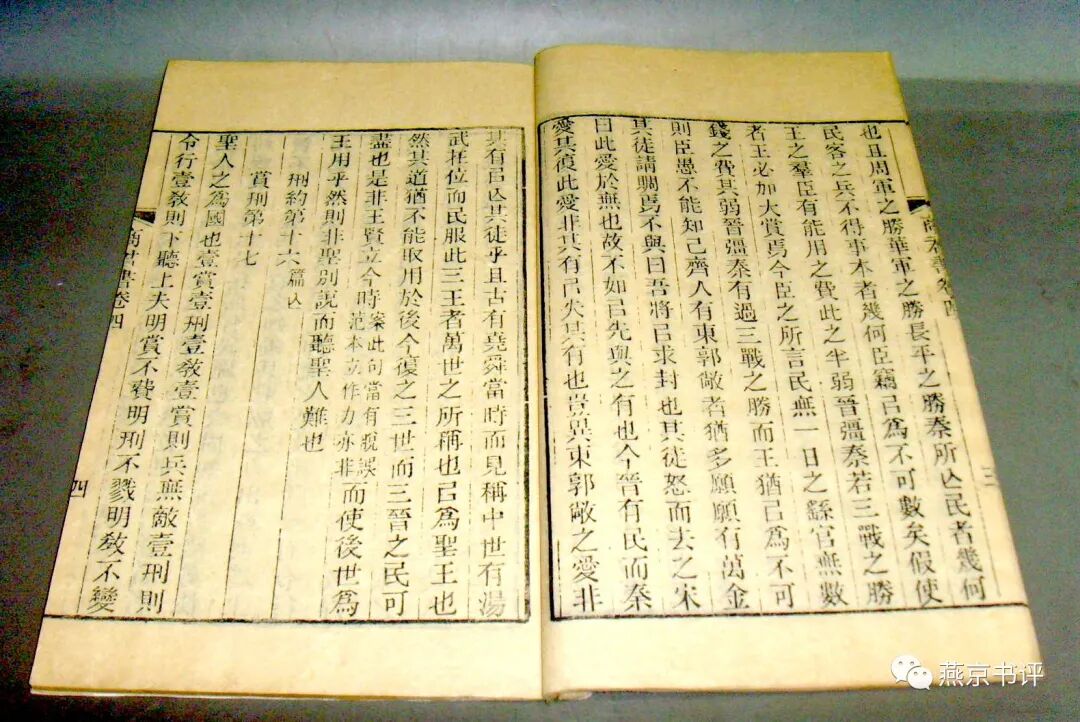 商君書卷四
三
也且周軍之勝華軍之勝長平之勝秦所亾民者幾何
民客之兵不得事本者幾何臣竊㠯爲不可數矣假使
王之羣臣有能用之費此之半弱晉彊秦若三戰之勝
者王必加大賞焉今臣之所言民無一日之繇官無數
錢之費其弱晉彊秦有過三戰之勝而王猶㠯爲不可
則臣愚不能知己齊人有東郭敞者猶多願願有萬金
其徒請賙焉不與曰吾將㠯求封也其徒怒而去之宋
曰此愛於無也故不如㠯先與之有也今晉有民而秦
愛其復此愛非其有㠯失其有也豈異東郭敞之愛非
其有㠯亾其徒乎且古有堯舜當時而見稱中世有湯
武在位而民服此三王者萬世之所稱也㠯爲聖王也
然其道猶不能取用於後今復之三世而三晉之民可
盡也是非王賢立今時案此句當有脫誤范本立作力亦非而使後世爲
王用乎然則非聖別說而聽聖人難也
刑約第十六篇亾
賞刑第十七
聖人之爲國也壹賞壹刑壹教壹賞則兵無敵壹刑則
令行壹教則下聽上夫明賞不費明刑不戮明教不變
商君書卷四
四
燕京书评